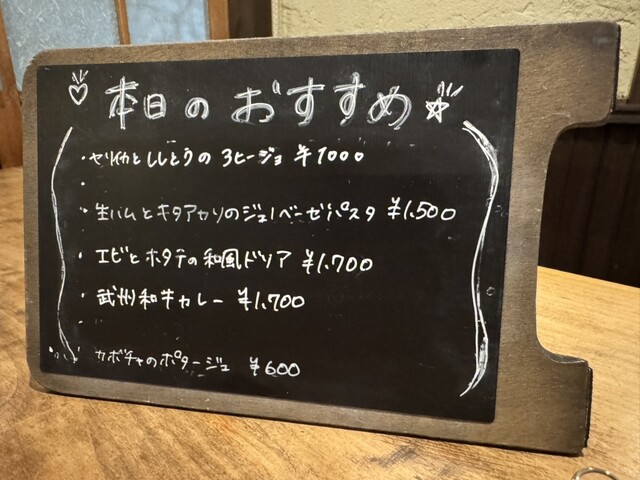 本日のおすすめ
・ヤリイカとししとうのアヒージョ ¥1000
・
・生ハムとキタアカリのジェノベーゼパスタ ¥1,500
・エビとホタテの和風ドリア ¥1,700
・武州和牛カレー ¥1,700
・
・カボチャのポタージュ ¥600